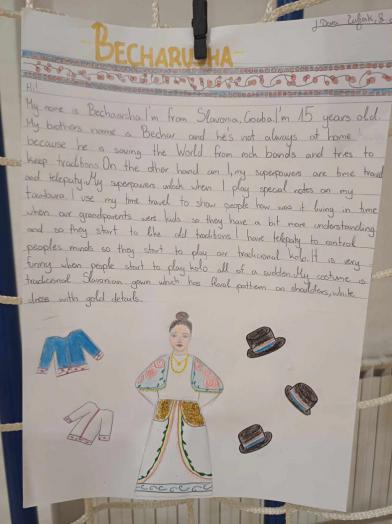 BECHARUSHA
Hi!
My name is Becharusha I'm from Slavonia, Croatia. I'm 15 years old.
My brothers name is Bechar and he's not always at home
because he is saving the World from rock bands and tries to
keep traditions. On the other hand am I, my superpowers are time travel
and telepaty. My superpowers work when I play special notes on my
tambura. I use my time travel to show people how was it living in time
when our grandparents were kids so they have a bit more understanding
and so they start to like old traditions. I have telepaty to control
peoples minds so they start to play our tradicional kolo. It is very
funny when people start to play kolo all of a sudden. My costume is
tradicional Slavonian gown which has floral pattern on shoulders, white
dress with gold details.